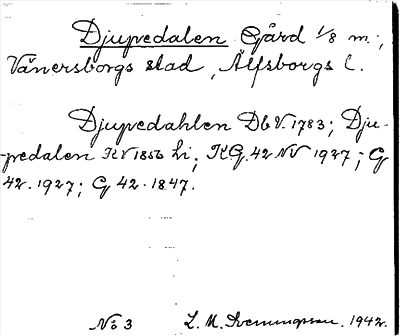 Djupedalen Gård 1/8 m.,
Vänersborgs stad, Älfsborgs l.
Djupedahlen Db V. 1783; Dju-
pedalen KV 1856 Li; KG. 42 NV 1927; G
42. 1927; G 42. 1847.
No 3 L. M. Svenungsson. 1942.